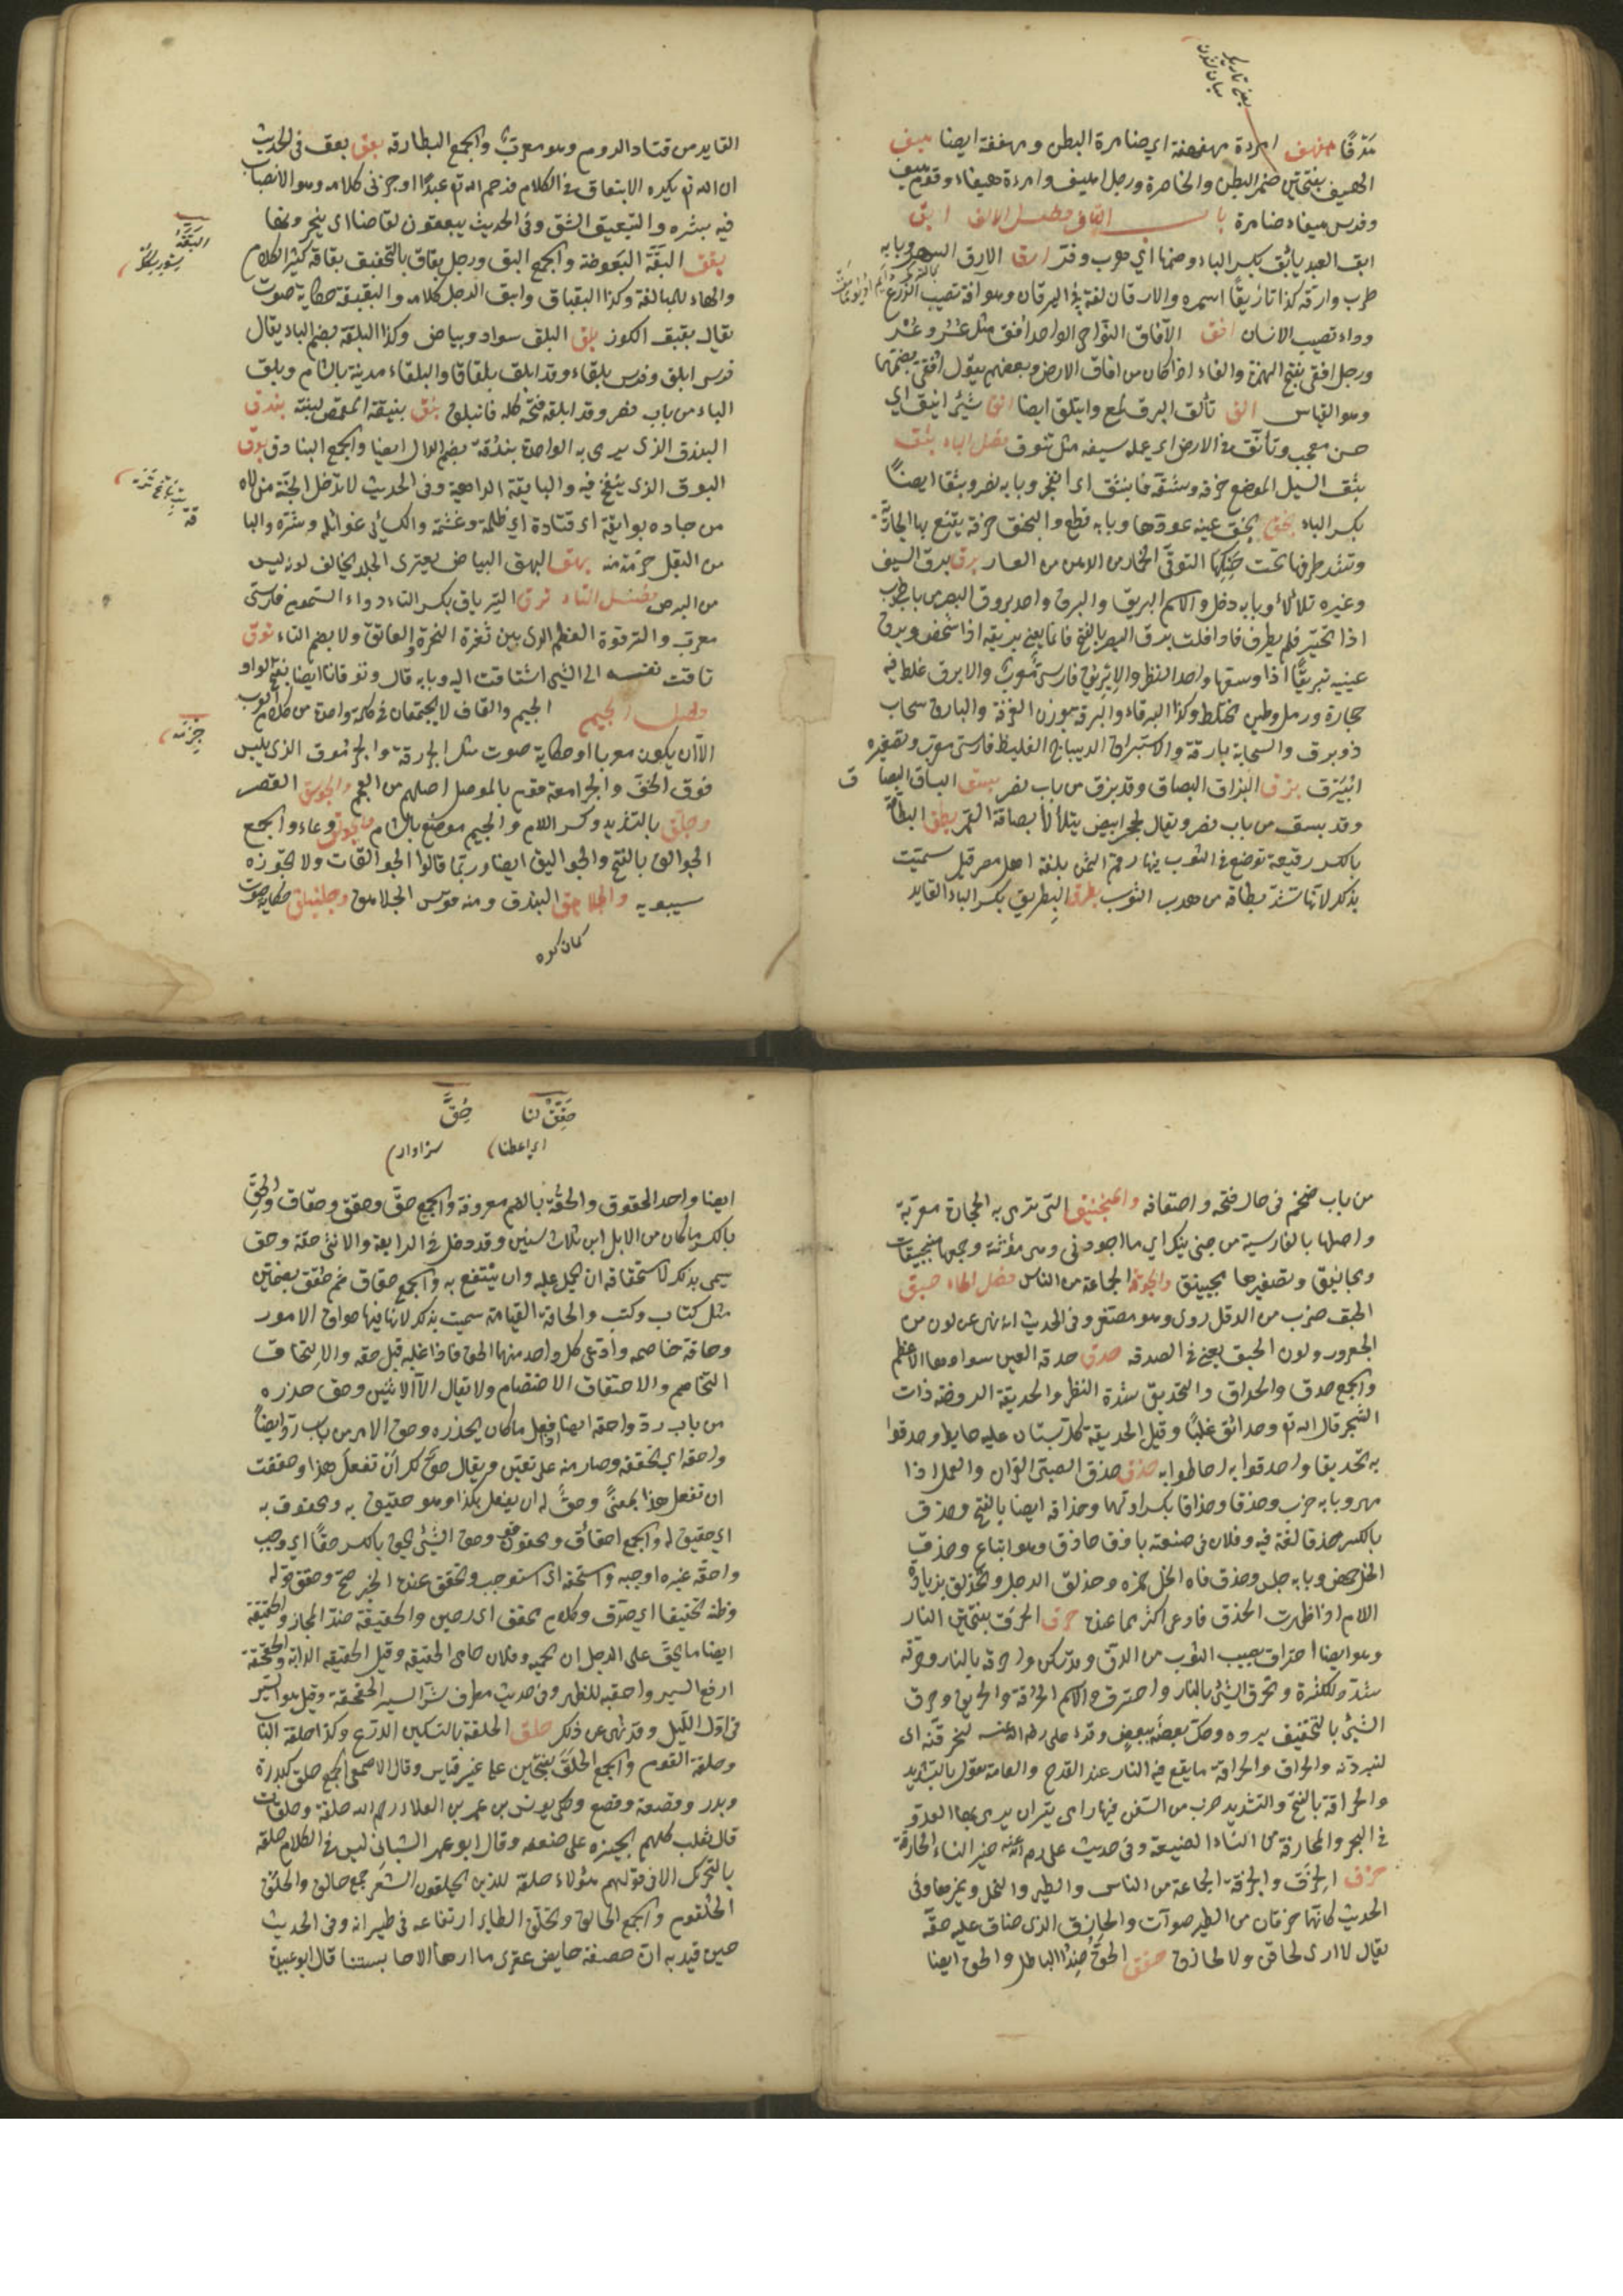 هفهف امرءة مهفهفة اي ضامرة البطن ومهففة ايضا هيف
الهيف بفتحتين ضمر البطن والخاصرة ورجل اهيف وامرءة هيفاء وقوم هيف
وفرس هيفاء ضامرة باب القاف فصل الالف ابق
ابق العبد يأبق بكسر الباء وضمها اي هرب ارق الارق السهر وبابه
طرب وارّقه كذا تأريقًا اسهره والارقان لغة في اليرقان وهو آفة تصيب الزرع
وداء تصيب الانسان افق الآفاق النواحي الواحد افق مثل عُسْر وعُسُر
ورجل افقى بفتح الهمزة والفاء اذا كان من افاق الارض وبعضهم يقول افقى بضمهما
وهو القياس الق تألق البرق لمع وايتلق ايضا انق شئ انيق اي
حسن معجب وتأنّق في الارض اي عمله مثل تنوق فصل الباء بثق
بثق السيل الموضع خرقه وشقه فانبثق اي انفجر وبابه نصر وبثقا ايضاً
بكسر الباء بخق بخق عينه عورها وبابه قطع والبخنق خرقة يتقنع بها الجارية
وتشد طرفها تحت حنكها لتوقى الخمار من الدهن برق برق السيف
وغيره تلألأ وبابه دخل والاسم البريق والبرق واحد بروق البصر من باب طرب
اذا تحيّر فلم يطرف فاذا قلت برق البصر بالفتح فانما يعنى بريقه اذا شخص وبرق
عينيه تبريقًا اذا وسعها واحد النظر والابريق فارسى معرّب والابرق غلظ فيه
حجارة ورمل وطين مختلط وكذا البرقاء والبرقة بوزن الغرفة والبارق سحاب
ذو برق والسحابة بارقة والاستبراق الديباج الغليظ فارسى معرّب وتصغيره
ابيرق بزق البزاق البصاق وقد بزق من باب نصر بسق البساق البصاق
وقد بسق من باب نصر ويقال لحجر ابيض يتلألأ بصاقة القمر بطق البطاقة
بالكسر رقيعة توضع في الثوب فيها رقم الثمن بلغة اهل مصر قيل سميت
بذلك لانها تشد بطاقة من هدب الثوب بطرق البطريق بكسر الباء القايد
القايد من قواد الروم وهو معرب والجمع البطارقة بعق بعق فى الحديث
ان الله تع يكره الانبعاق في الكلام فرحم الله تع عبدًا اوجز فى كلامه وهو الانصباب
فيه بشره والتبعيق الشق وفى الحديث يبعقون لقاحنا اى ينحرونها
بقق البقّة البعوضة والجمع البق ورجل بقاق بالتخفيف بقاقة كثير الكلام
والهاء للمبالغة وكذا البقباق وابق الرجل كلامه والبقبقة حكاية صوت
يقال بقبق الكوز بلق البلق سواد وبياض وكذا البلقة بضم الباء يقال
فرس ابلق وفرس بلقاء وقد ابلق بلقاقا والبلقاء مدينة بالشام وبلق
الباء من باب نصر وقد ابلقه فتحه كله فانبلق بنق بنيقة القميص لبنته بندق
البندق الذى يرمى به الواحدة بندقة بضم الدال ايضا والجمع البنادق بوق
البوق الذى ينفخ فيه والبايقة الداهية وفى الحديث لا تدخل الجنة من لا
من جاره بوايقه اى قتادة اي ظلمه وغشمه والكسائى غوائله وشره والبا
من البقل حزمة منه بهق البهق البياض يعترى الجلد يخالف لونه ليس
من البرص فصل التاء ترق الترياق بكسر التاء دواء السموم فارسى
معرب والترقوة العظم الذى بين ثغرة النحر والعاتق ولا بضم التاء توق
تاقت نفسه الى الشئ اشتاقت اليه وبابه قال وتوقانا ايضا بفتح الواو
فصل الجيم الجيم والقاف لا يجتمعان فى كلمة واحدة من كلام العرب
الا ان يكون معربا او حكاية صوت مثل الجردقة والجرموق الذى يلبس
فوق الخف والجرامقة قوم بالموصل اصلهم من العجم والجوسق القصر
وجلّق بالتشديد وكسر اللام والجيم موضع بالشام والجوالق وعاء والجمع
الجوالق بالفتح والجواليق ايضا وربما قالوا الجوالقات ولا يجوزه
سيبويه والجلاهق البندق ومنه قوس الجلاهق وجلنبلق حكاية صوت
كمان كروه
من باب ضخم فى حال فتحه واصفاقه والمنجنيق التى ترمى به الحجارة معربة
واصلها بالفارسية من جى نيك اي ما اجودنى وهى مؤنثة وجمعها منجنيقات
ومجانيق وتصغيرها مجينيق والجوقة الجماعة من الناس فصل الحاء حبق
الحبق ضرب من الدقل ردى وهو مصغر وفى الحديث انه نهى عن لون من
الجعرور ولون الحبيق يعنى في الصدقة حدق حدقة العين سوادها الاعظم
والجمع حدق والحداق والتحديق شدة النظر والحديقة الروضة ذات
الشجر قال الله تع وحدائق غلبًا وقيل الحديقة كل بستان عليه حايط وحدقوا
به تحديقا واحدقوا به احاطوا به حذق حذق الصبى القران والعمل اذا
مهر وبابه ضرب وحذقا وحذاقا بكسر اولهما وحذاقة ايضا بالفتح وحذق
بالكسر حذقا لغة فيه وفلان فى صنعته باذق حاذق وهو اتباع وحذق
الخل حمض وبابه جلس وحذق فاه الخل حمزه وحذلق الرجل وتحذلق بزيادة
اللام اذا اظهرت الحذق فادعى اكثر مما عنده حرق الحرق بفتحتين النار
وهو ايضا احتراق يصيب الثوب من الدق وقد يسكن واحرقه بالنار وحرقه
شدد للكثرة وتحرق الشئ بالنار واحترق والاسم الحرقة والحريق وحرق
الشئ بالتخفيف برده وحك بعضه ببعض وقرء على رضى الله عنه لنحرقنه اى
لنبردنه والحراق والحراقة ما يقع فيه النار عند القدح والعامة تقول بالتشديد
والحراقة بالفتح والتشديد ضرب من السفن فيها رامى نيران يرمى بها العدو
فى البحر والمحارقة من النساء الضيقة وفى حديث على رضى الله عنه خير النساء الحارقة
حزق الحزق والحزقة الجماعة من الناس والطير والنخل وغيرها وفى
الحديث كانهما حزقان من الطير صواف والحازق الذى ضاق عليه خفّه
يقال لا ارى لحاقن ولا لحازق حقق الحق ضد الباطل والحق ايضا
حَقِّقْ لنا حُقَّ
اى اعطنا سزاوار
ايضا واحد الحقوق والحقّة بالضم معروفة والجمع حقّ وحقق وحقاق والحقّ
بالكسر ما كان من الابل ابن ثلاث سنين وقد دخل فى الرابعة والانثى حقّة وحق
سمى بذلك لاستحقاقه ان يحمل عليه وان ينتفع به والجمع حقاق ثم حقق بضمتين
مثل كتاب وكتب والحاقة القيامة سميت بذلك لانها فيها حواق الامور
وحاقّه خاصمه وادعى كل واحد منهما الحق فاذا غلبه قيل حقه والاحتقاق
التخاصم والاحتقاق الاختصام ولا يقال الا لاثنين وحق حذره
من باب ردّ واحقه ايضا اذا فعل ما كان يحذره وحق الامر من باب ردّ ايضاً
واحقه اي تحققه وصار منه على يقين ويقال حق لك ان تفعل هذا وحققت
ان تفعل هذا بمعنىً وحقّ له ان يفعل كذا وهو حقيق به ومحقوق به
اي حقيق له والجمع احقاء ومحقوقون وحق الشئ يحق بالكسر حقًا اي وجب
واحقه غيره اوجبه واستحقه اى استوجب وتحقق عنده الخبر صح وحقق قوله
وظنه تحقيقا اي صدق وكلام محقق اى رصين والحقيقة ضد المجاز والحقيقة
ايضا ما يحق على الرجل ان يحميه وفلان حامى الحقيقة وقيل الحقيقة الراية والحقحقة
ارفع السير واتعبه للظهر وفى حديث مطرف شر السير الحقحقة وقيل هو السير
فى اول الليل وقد نهى عن ذلك حلق الحلقة بالتسكين الدرع وكذا حلقة الباب
وحلقة القوم والجمع الحلق بفتحتين على غير قياس وقال الاصمعى الجمع حلق كبدرة
وبدر وقصعة وقصع وحكى يونس عن عمر بن العلاء رحم الله حلقة وحلقات
قال ثعلب كلهم يجيزه على ضعفه وقال ابو عمر الشيبانى ليس في الكلام حلقة
بالتحرك الا فى قولهم هؤلاء حلقة للذين يحلقون الشعر جمع حالق والحلق
الحلقوم والجمع الحلاق وتحلق الطاير ارتفاعه فى طيرانه وفى الحديث
حين قيل له ان صفية حايض عقرى ما اراها الا حابستنا قال ابو عبيدة